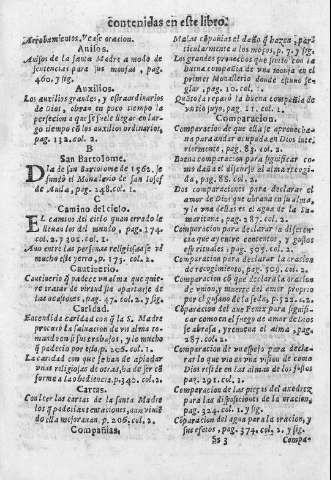 contenidas en este libro.
Arrobamientos. Vease oracion.
Auisos.
Auisos de la santa Madre a modo de
sentencias para sus monjas, pag.
460. y sig.
Auxilios.
Los auxilios grandes, y estraordinarios
de Dios, obran en poco tiempo la
perfecion a que se suele llegar en lar-
go tiempo cõ los auxilios ordinarios,
pag. 132. col. 2.
B
San Bartolome.
Dia de san Bartolome de 1562. se
fundò el Monasterio de san Iosef
de Auila, pag. 248. col. 1.
C
Camino del cielo.
EL camino del cielo quan errado le
lleuan los del mundo, pag. 174.
col. 2. y 302. col. 1.
Aun entre las personas religiosas se vè
mucho este yerro, p. 173. col. 2.
Cautiuerio.
Cautiuerio q̃ padece vn alma que quie-
re tratar de virtud sin apartarse de
las ocasiones, pag. 47. col. 2. y sig.
Caridad.
Encendida caridad con q̃ la S. Madre
procurò la saluacion de vn alma romando
en si sus trabajos, y lo mucho
q̃ padecio por esto, p. 206. col. 1.
La caridad con que se han de apiadar
vnas religiosas de otras, ha de ser cõ
forme a la obediencia. p. 340. col. 2.
Cartas.
Consulter las cartas de la santa Madre
los q̃ padecia tentaciones, aun viuiẽ
do ella mejorauan. p. 206. col. 2.
Compañias,
Malas cõpañias el daño q̃ hazen, par-
ticularmente a los moços, p. 7. y sig.
Los grandes prouechos que sintio con la
buena compañia de vna monja en el
primer Monasterio donde estuuo se-
glar, pag. 10. col. 1.
Quãto la reparò la buena compañia de
vn tio suyo, pag. 11. col. 1.
Comparacion.
Comparacion de que ella se aprouecha-
ua para andar ocupada en Dios inte-
riormente, pag. 83. col. 1.
Buena comparacion para significar co-
mo daña el dezirse el alma recogi-
da, pag. 85. col. 2.
Dos comparaciones para declarar el
amor de Dios que obraua en su alma,
y la vna dellas es el agua de la Sa-
maritana, pag. 287. col. 2.
Comparacion para declarar la diferen-
cia que ay entre contentos, y gustos
espirituales, pag. 505. col. 2.
Comparacion para declarar la oracion
de recogimiento, pag. 509. col. 2.
Comparacion cõ que declara la oracion
de vnion, y muerte del amor proprio
por el gusano de la seda, p. 522. c. 2.
Cõparacion del aue Fenix para signifi-
car como en el fuego de amor de Dios
se abrasa, y renueua el alma, pag.
287. col. 2.
Comparacion de vn espejo para decla-
rar lo que vio en vna vision de como
Dios reside en las almas de los justos
pag. 291. col. 2.
Comparacion de las pieças del axedrez
para las disposiciones de la oracion,
pag. 324. col. 1. y sig.
Cõparacion del agua para la oracion, y
sus efetos, pag. 374. col. 2. y sig.
Ss 3
Compa-